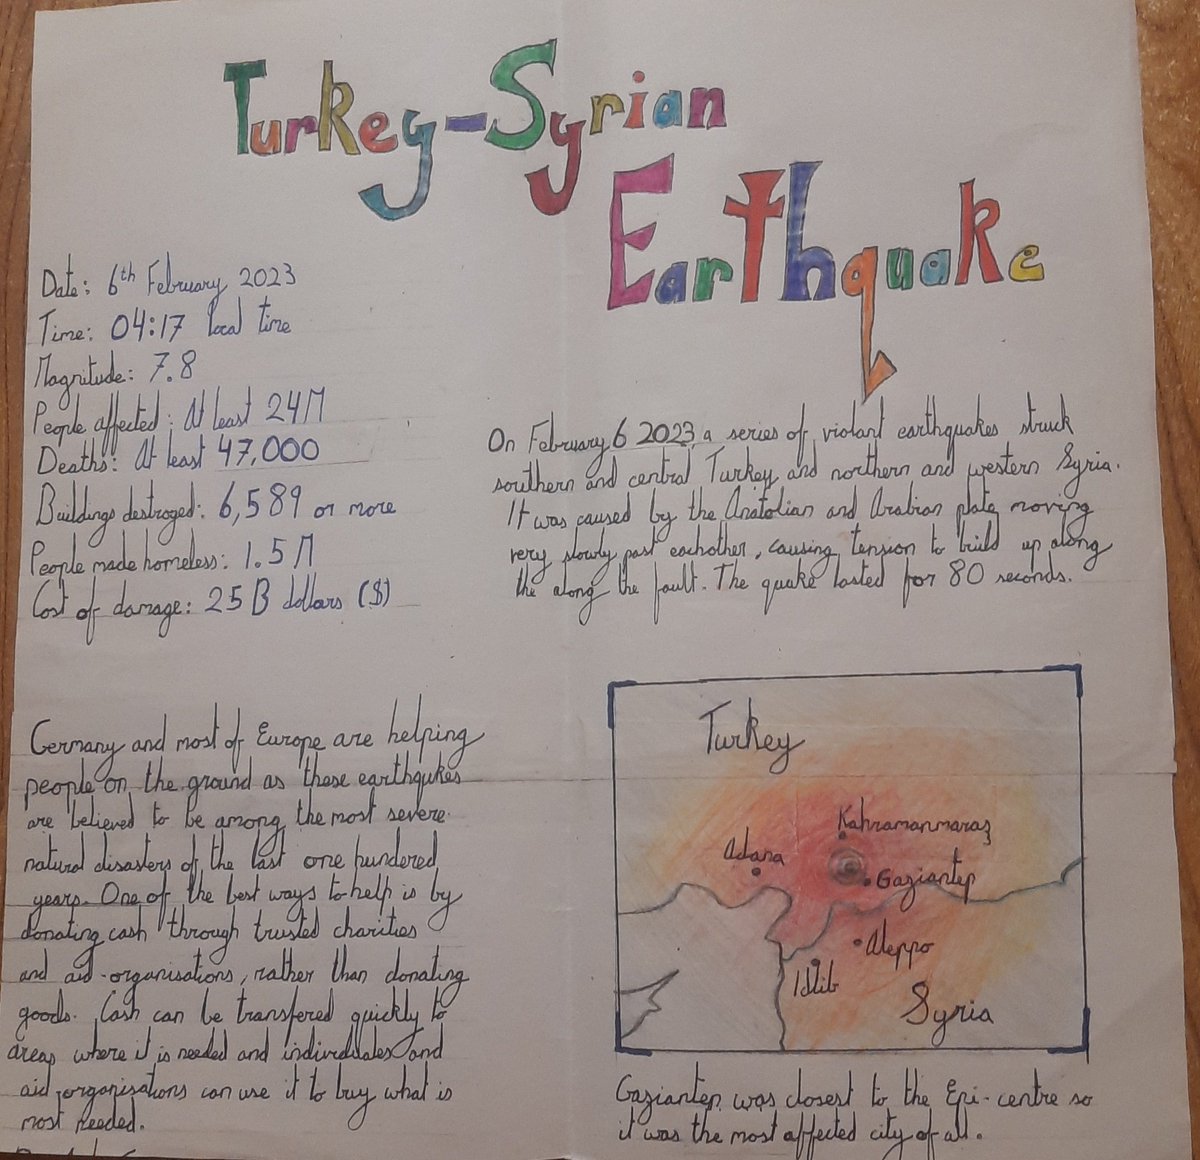 Turkey-Syrian
Earthquake
Date: 6th February 2023
Time: 04:17 local time
Magnitude: 7.8
People affected: At least 24M
Deaths: At least 47,000
Buildings destroyed: 6,589 or more
People made homeless: 1.5M
Cost of damage: 25B dollars ($)
On February 6 2023, a series of violant earthquakes struck
southern and central Turkey and northern and western Syria.
It was caused by the Anatolian and Arabian plate moving
very slowly past eachother, causing tension to build up along
the along the fault. The quake lasted for 80 seconds.
Germany and most of Europe are helping
people on the ground as these earthqukes
are believed to be among the most severe
natural disasters of the last one hundred
years. One of the best ways to help is by
donating cash through trusted charities
and aid-organisations, rather than donating
goods. Cash can be transfered quickly to
areas where it is needed and individuales and
aid-organisations can use it to buy what is
most needed.
Turkey
Kahramanmaraş
Adana
Gaziantep
Aleppo
Idlib
Syria
Gaziantep was closest to the Epi-centre so
it was the most affected city of all.